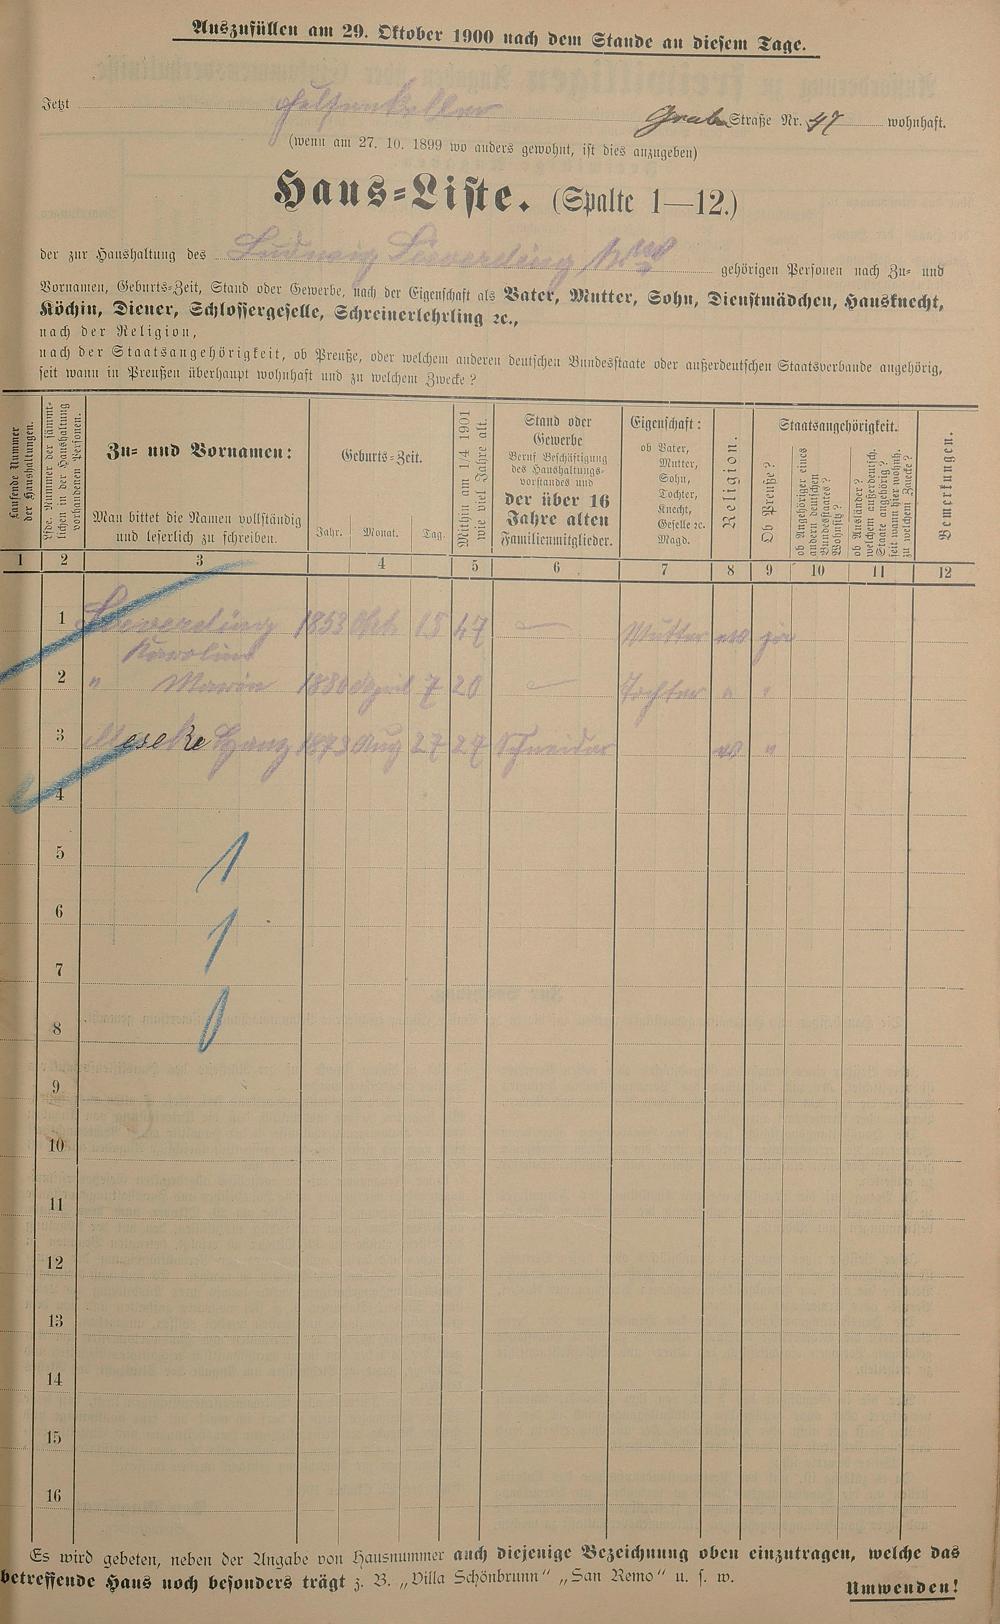 Auszufüllen am 29. Oktober 1900 nach dem Stande an diesem Tage.
Jetzt Felsenkeller Grabe Straße Nr. 47 wohnhaft.
(wenn am 27. 10. 1899 wo anders gewohnt, ist dies anzugeben)
Haus-Liste. (Spalte 1—12.)
der zur Haushaltung des Ludwig Sieverding Wwe gehörigen Personen nach Zu- und
Vornamen, Geburts-Zeit, Stand oder Gewerbe, nach der Eigenschaft als Vater, Mutter, Sohn, Dienstmädchen, Hausknecht,
Köchin, Diener, Schlossergeselle, Schreinerlehrling ꝛc.,
nach der Religion,
nach der Staatsangehörigkeit, ob Preuße, oder welchem anderen deutschen Bundesstaate oder außerdeutschen Staatsverbande angehörig,
seit wann in Preußen überhaupt wohnhaft und zu welchem Zwecke?
Laufende Nummer
der Haushaltungen.
Lfde. Nummer der sämmt-
lichen in der Haushaltung
vorhandenen Personen.
Zu- und Vornamen:
Man bittet die Namen vollständig
und leserlich zu schreiben.
Geburts-Zeit.
Jahr. Monat. Tag.
Mithin am 1/4 1901
wie viel Jahre alt.
Stand oder
Gewerbe
Beruf Beschäftigung
des Haushaltungs-
vorstandes und
der über 16
Jahre alten
Familienmitglieder.
Eigenschaft:
ob Vater,
Mutter,
Sohn,
Tochter,
Knecht,
Geselle ꝛc.
Magd.
Religion.
Staatsangehörigkeit.
Ob Preuße?
ob Angehöriger eines
andern deutschen
Bundesstaates?
Wohnsitz?
ob Ausländer?
welchem außerdeutsch.
Staate angehörig?
seit wann hier wohnh.
zu welchem Zwecke?
Bemerkungen.
1 2 3 4 5 6 7 8 9 10 11 12
1 Sieverding 1853 Okt. 15 47 — Mutter ev ja
Karoline
2 " Marie 1880 April 7 20 — Tochter " "
3 Meseke Franz 1873 Aug 27 27 Schneider ev "
4
5 1
6
7 1
8 0
9
10
11
12
13
14
15
16
Es wird gebeten, neben der Angabe von Hausnummer auch diejenige Bezeichnung oben einzutragen, welche das
betreffende Haus noch besonders trägt z. B. „Villa Schönbrunn“ „San Remo“ u. s. w.
Umwenden!